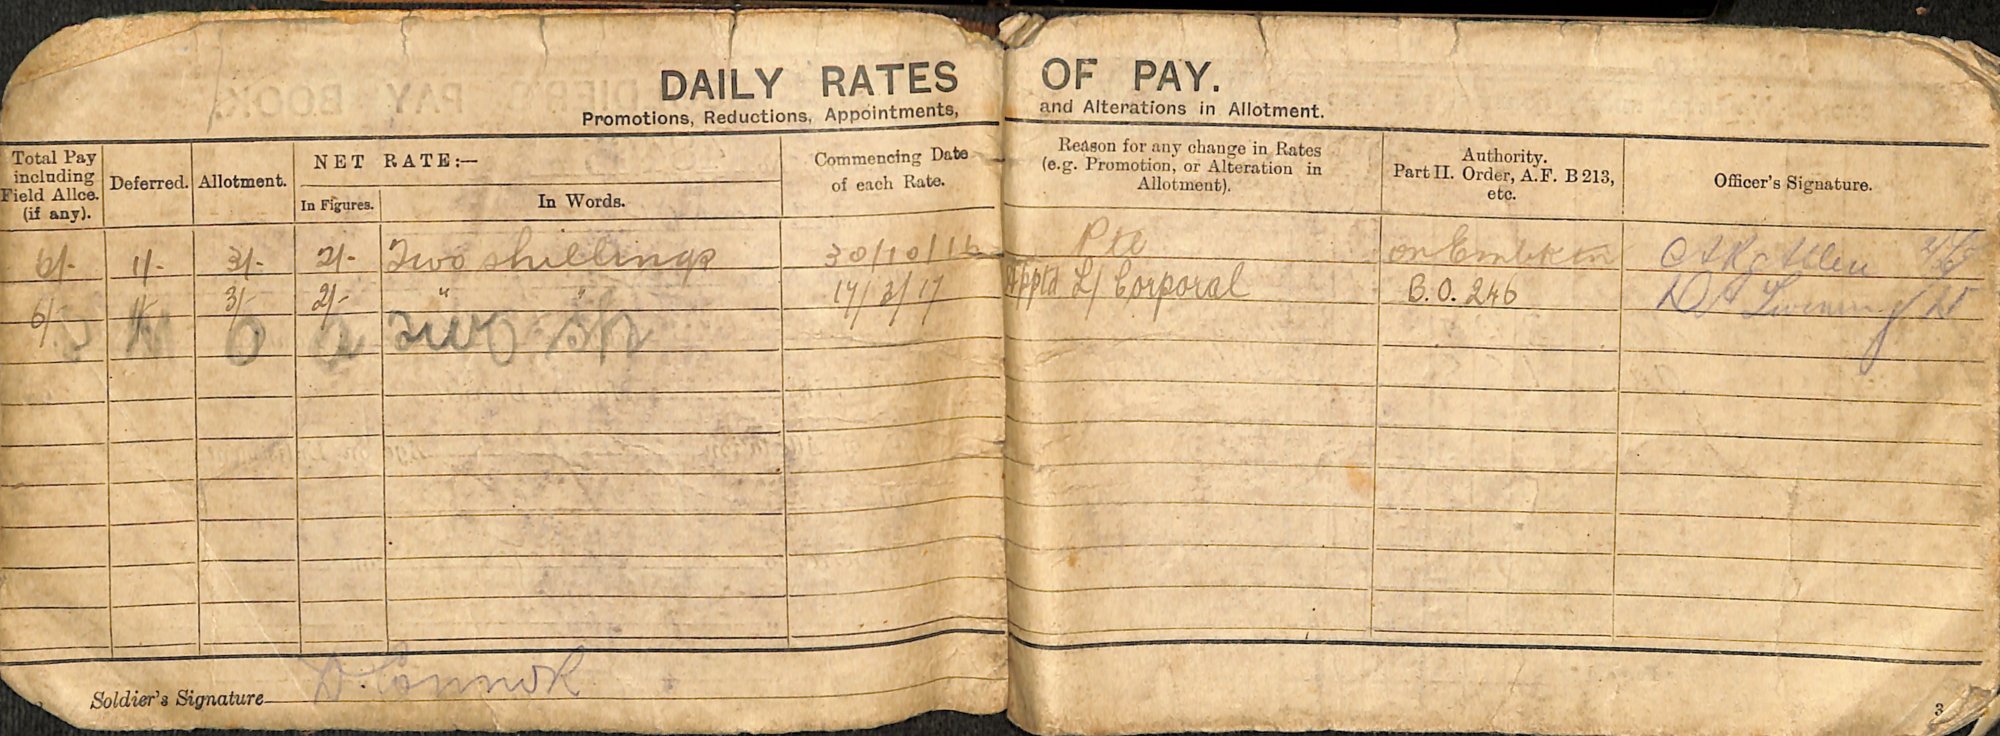 DAILY RATES OF PAY.
Promotions, Reductions, Appointments, and Alterations in Allotment.
Total Pay including Field Allce. (if any).
Deferred.
Allotment.
NET RATE:—
In Figures.
In Words.
Commencing Date of each Rate.
Reason for any change in Rates (e.g. Promotion, or Alteration in Allotment).
Authority. Part II. Order, A.F. B 213, etc.
Officer's Signature.
6/- 1/- 3/- 2/- Two shillings 30/10/16 Pte on Embktn
6/- 1/- 3/- 2/- " " 17/3/17 Apptd L/ Corporal B.O. 246
Two sh
Soldier's Signature D. Connok
3